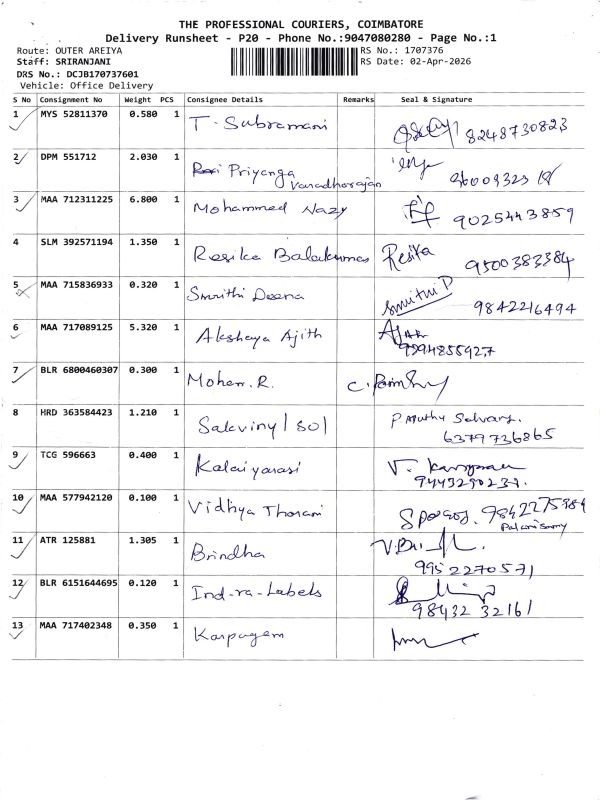 THE PROFESSIONAL COURIERS, COIMBATORE
Delivery Runsheet - P20 - Phone No.:9047080280 - Page No.:1
Route: OUTER AREIYA
RS No.: 1707376
Staff: SRIRANJANI
RS Date: 02-Apr-2026
DRS No.: DCJB170737601
Vehicle: Office Delivery
S No Consignment No Weight PCS Consignee Details Remarks Seal & Signature
1 MYS 52811370 0.580 1 T. Subramani 8248730823
2 DPM 551712 2.030 1 Priyanga Varadhorajan
3 MAA 712311225 6.800 1 Mohammed Nazy 9025443859
4 SLM 392571194 1.350 1 Resika Balakumas Resika 9500383384
5 MAA 715836933 0.320 1 Smrithi Deena Smrithi P 9842216494
6 MAA 717089125 5.320 1 Akshaya Ajith 9994855927
7 BLR 6800460307 0.300 1 Mohan. R.
8 HRD 363584423 1.210 1 P Muthu Selvary.
6379736865
9 TCG 596663 0.400 1 Kalaiyarasi
9443290237.
10 MAA 577942120 0.100 1 Vidhya Tharani 9842275984
Palanisamy
11 ATR 125881 1.305 1 Brindha
9952270571
12 BLR 6151644695 0.120 1 Ind-ra-Labels
98432 32161
13 MAA 717402348 0.350 1 Karpagam